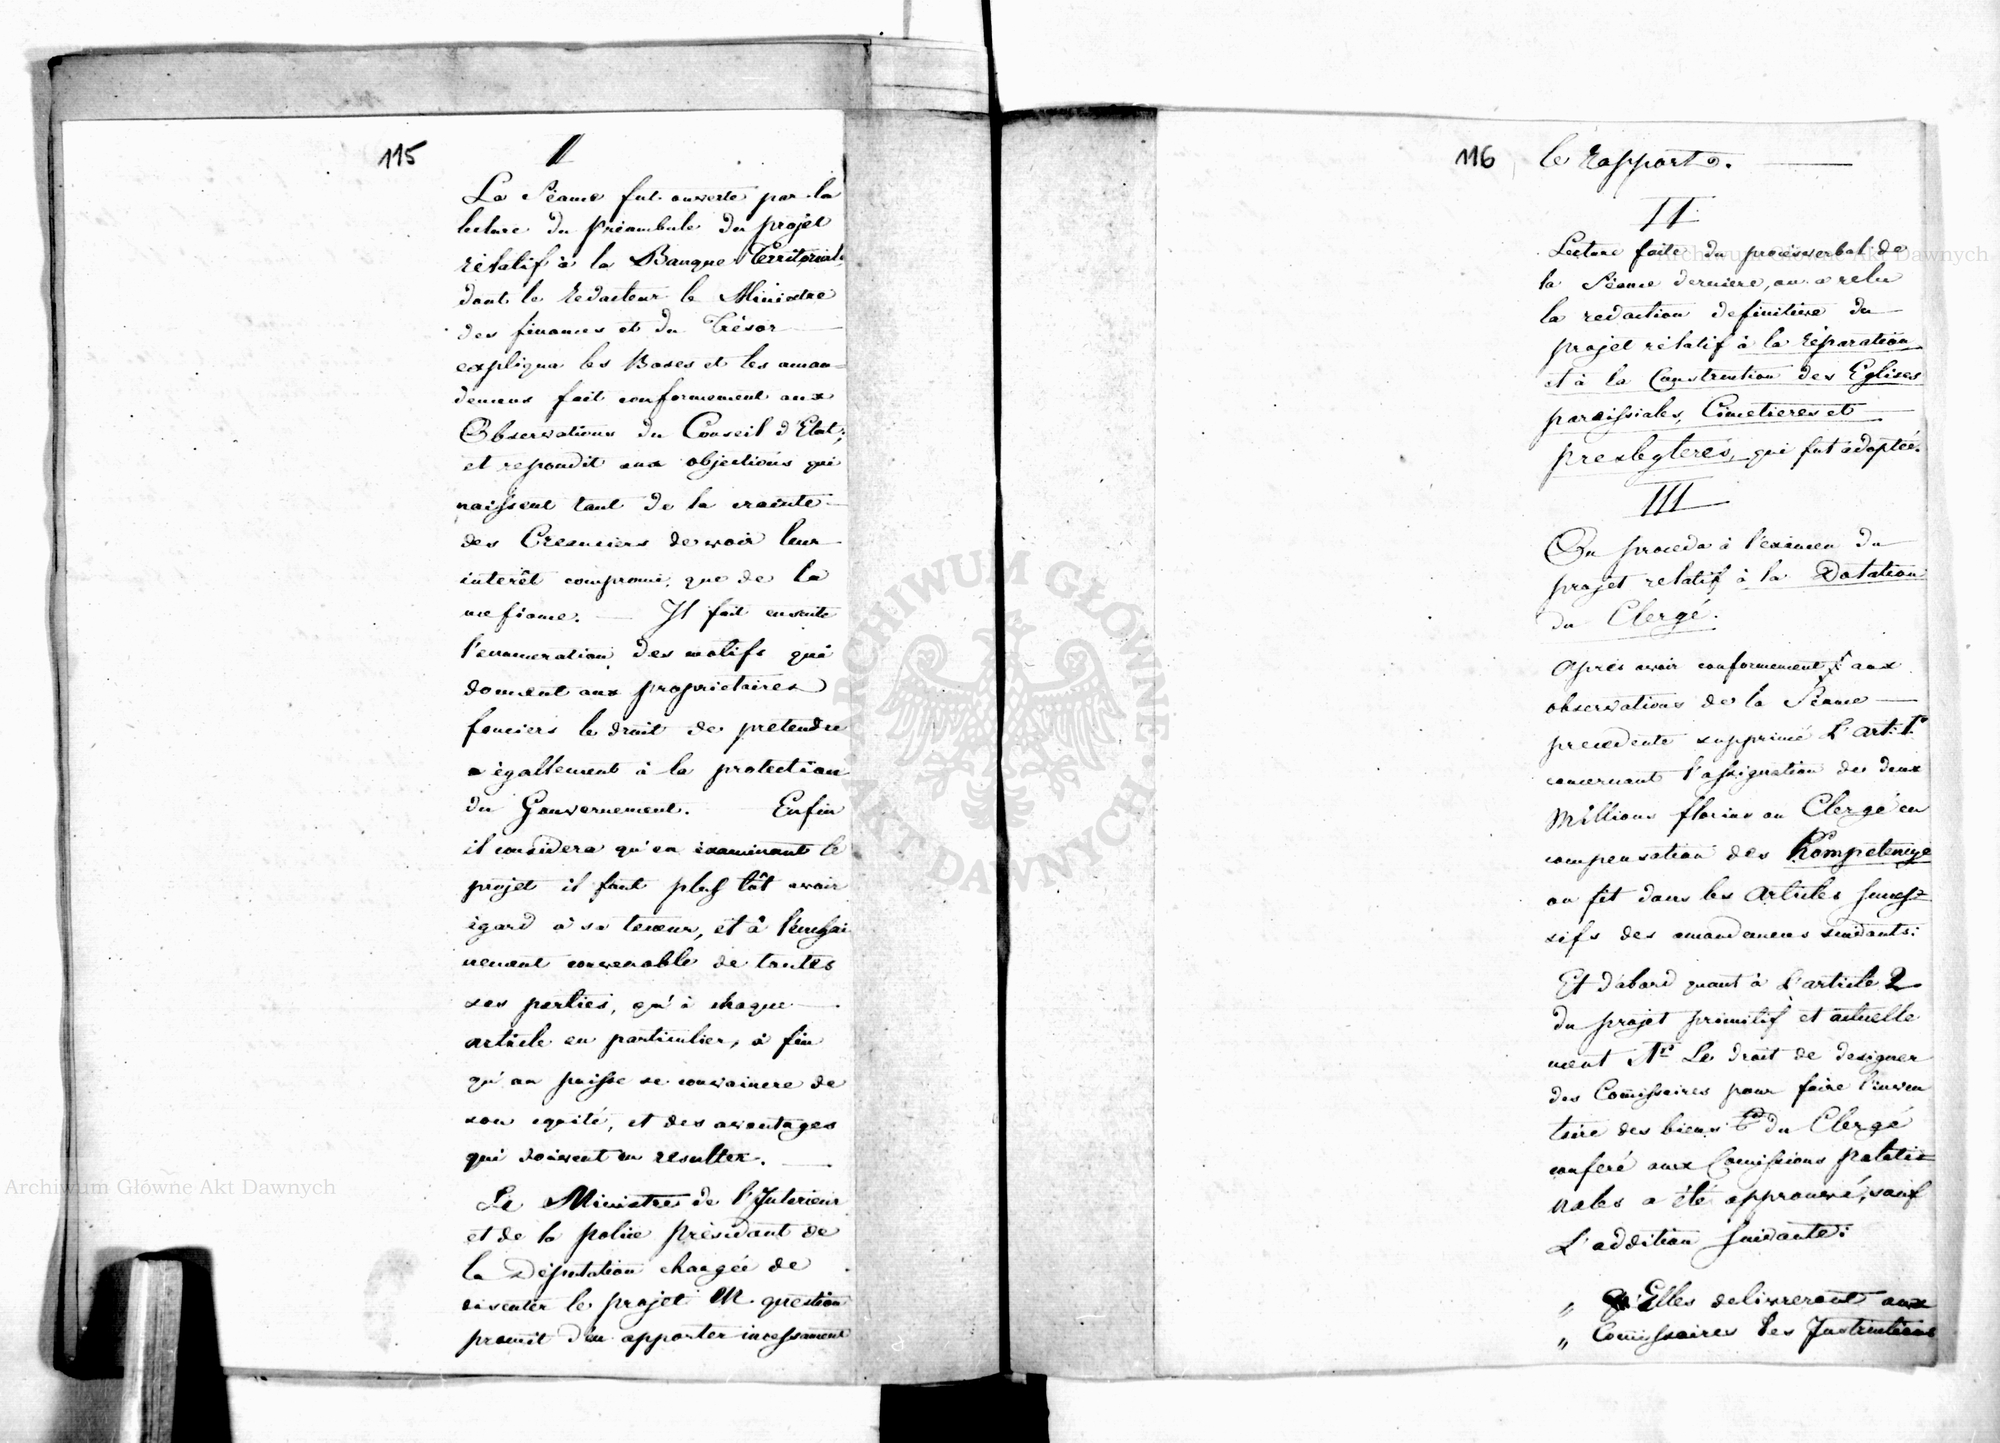 115
II
La Séance fut ouverte par la
lecture du Préambule du projet
rélatif à la Banque Territoriale
dont le redacteur le Ministre
des finances et du Trésor
expliqua les Bases et les aman-
demens fait conformement aux
Observations du Conseil d'Etat;
et repondit aux objections qui
naissent tant de la crainte
des Creanciers de voir leur
interêt compromi, que de la
mefiance. — Il fait ensuite
l'enumeration des motifs qui
donnent aux proprietaires
fonciers le droit de pretendre
égallement à la protection
du Gouvernement. Enfin
il considera qu'en examinant le
projet il faut plus tôt avoir
égard à sa teneur, et à l'enchai
nement convenable de toutes
ses parties, qu'à chaque
article en particulier, à fin
qu'on puisse se convaincre de
son equité, et des avantages
qui doivent en resulter.
Le Ministre de l'Interieur
et de la police présidant de
la Députation chargée de
discuter le projet en question
promit d'en apporter incessament
116
le Rapport.
II
Lecture faite du procèsverbal de
la Séance derniere, on a relu
la redaction definitive du
projet rélatif à la réparation
et à la Construction des Eglises
paroissiales, Cimetieres et
presbyterés, qui fut adoptée.
III
On proceda à l'examen du
projet relatif à la Dotation
du Clergé.
Après avoir conformement aux
observations de la Séance
precedente supprimé L'art: 1r
concernant l'assignation de deux
Millions florins au Clergé en
compensation des Kompetencye
on fit dans les Articles succes=
sifs des amandemens suivants:
Et d'abord quant à L'article 2
du projet primitif et actuelle
ment 1r Le droit de designer
des Comissaires pour faire l'inven
taire des biens du Clergé
conferé aux Comissions Palati=
nales a été approuvé, sauf
L'addition suivante:
„ Elles delivreront aux
„ Comissaires des Instructions
Archiwum Główne Akt Dawnych
Archiwum Główne Akt Dawnych
ARCHIWUM GŁÓWNE AKT DAWNYCH